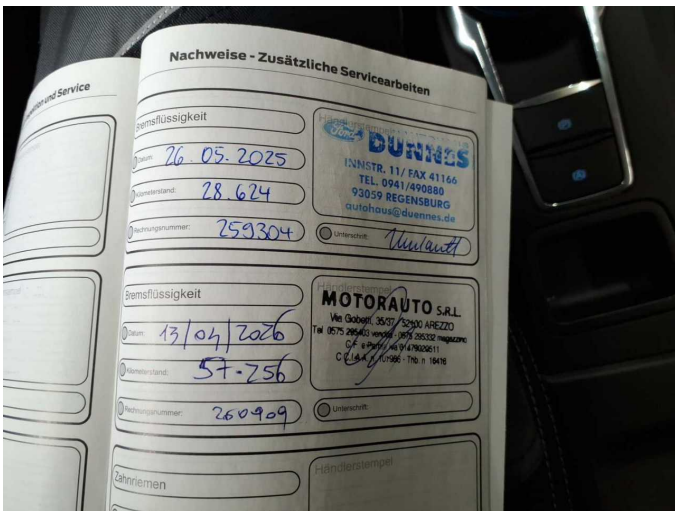 Nachweise - Zusätzliche Servicearbeiten
und Service
Bremsflüssigkeit
Datum: 26.05.2025
Kilometerstand: 28.624
Rechnungsnummer: 259304
Ford DÜNNES
INNSTR. 11/ FAX 41166
TEL. 0941/490880
93059 REGENSBURG
autohaus@duennes.de
Unterschrift:
Bremsflüssigkeit
Datum: 13/04/2026
Kilometerstand: 57-256
Rechnungsnummer: 260909
Händlerstempel
MOTORAUTO S.R.L.
Via Gobetti, 35/37 52100 AREZZO
Tel 0575 295403 vendita - 0575 295332 magazzino
C.F. e Partita Iva 01479029511
C.C.I.A.A. n. 101986 - Trib. n. 16416
Unterschrift:
Zahnriemen
Händlerstempel